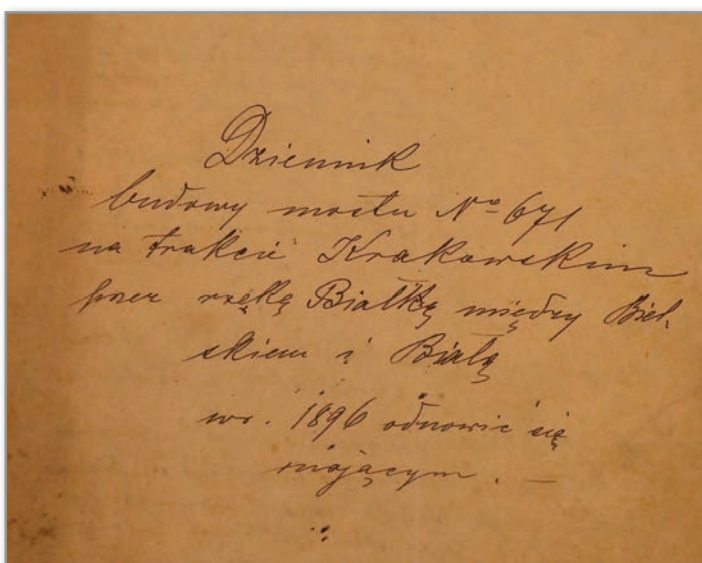 Dziennik
budowy mostu No 671
na trakcie Krakowskim
przez rzekę Białkę między Biel-
skiem i Białą
w r. 1896 odnowić się
mającym. —